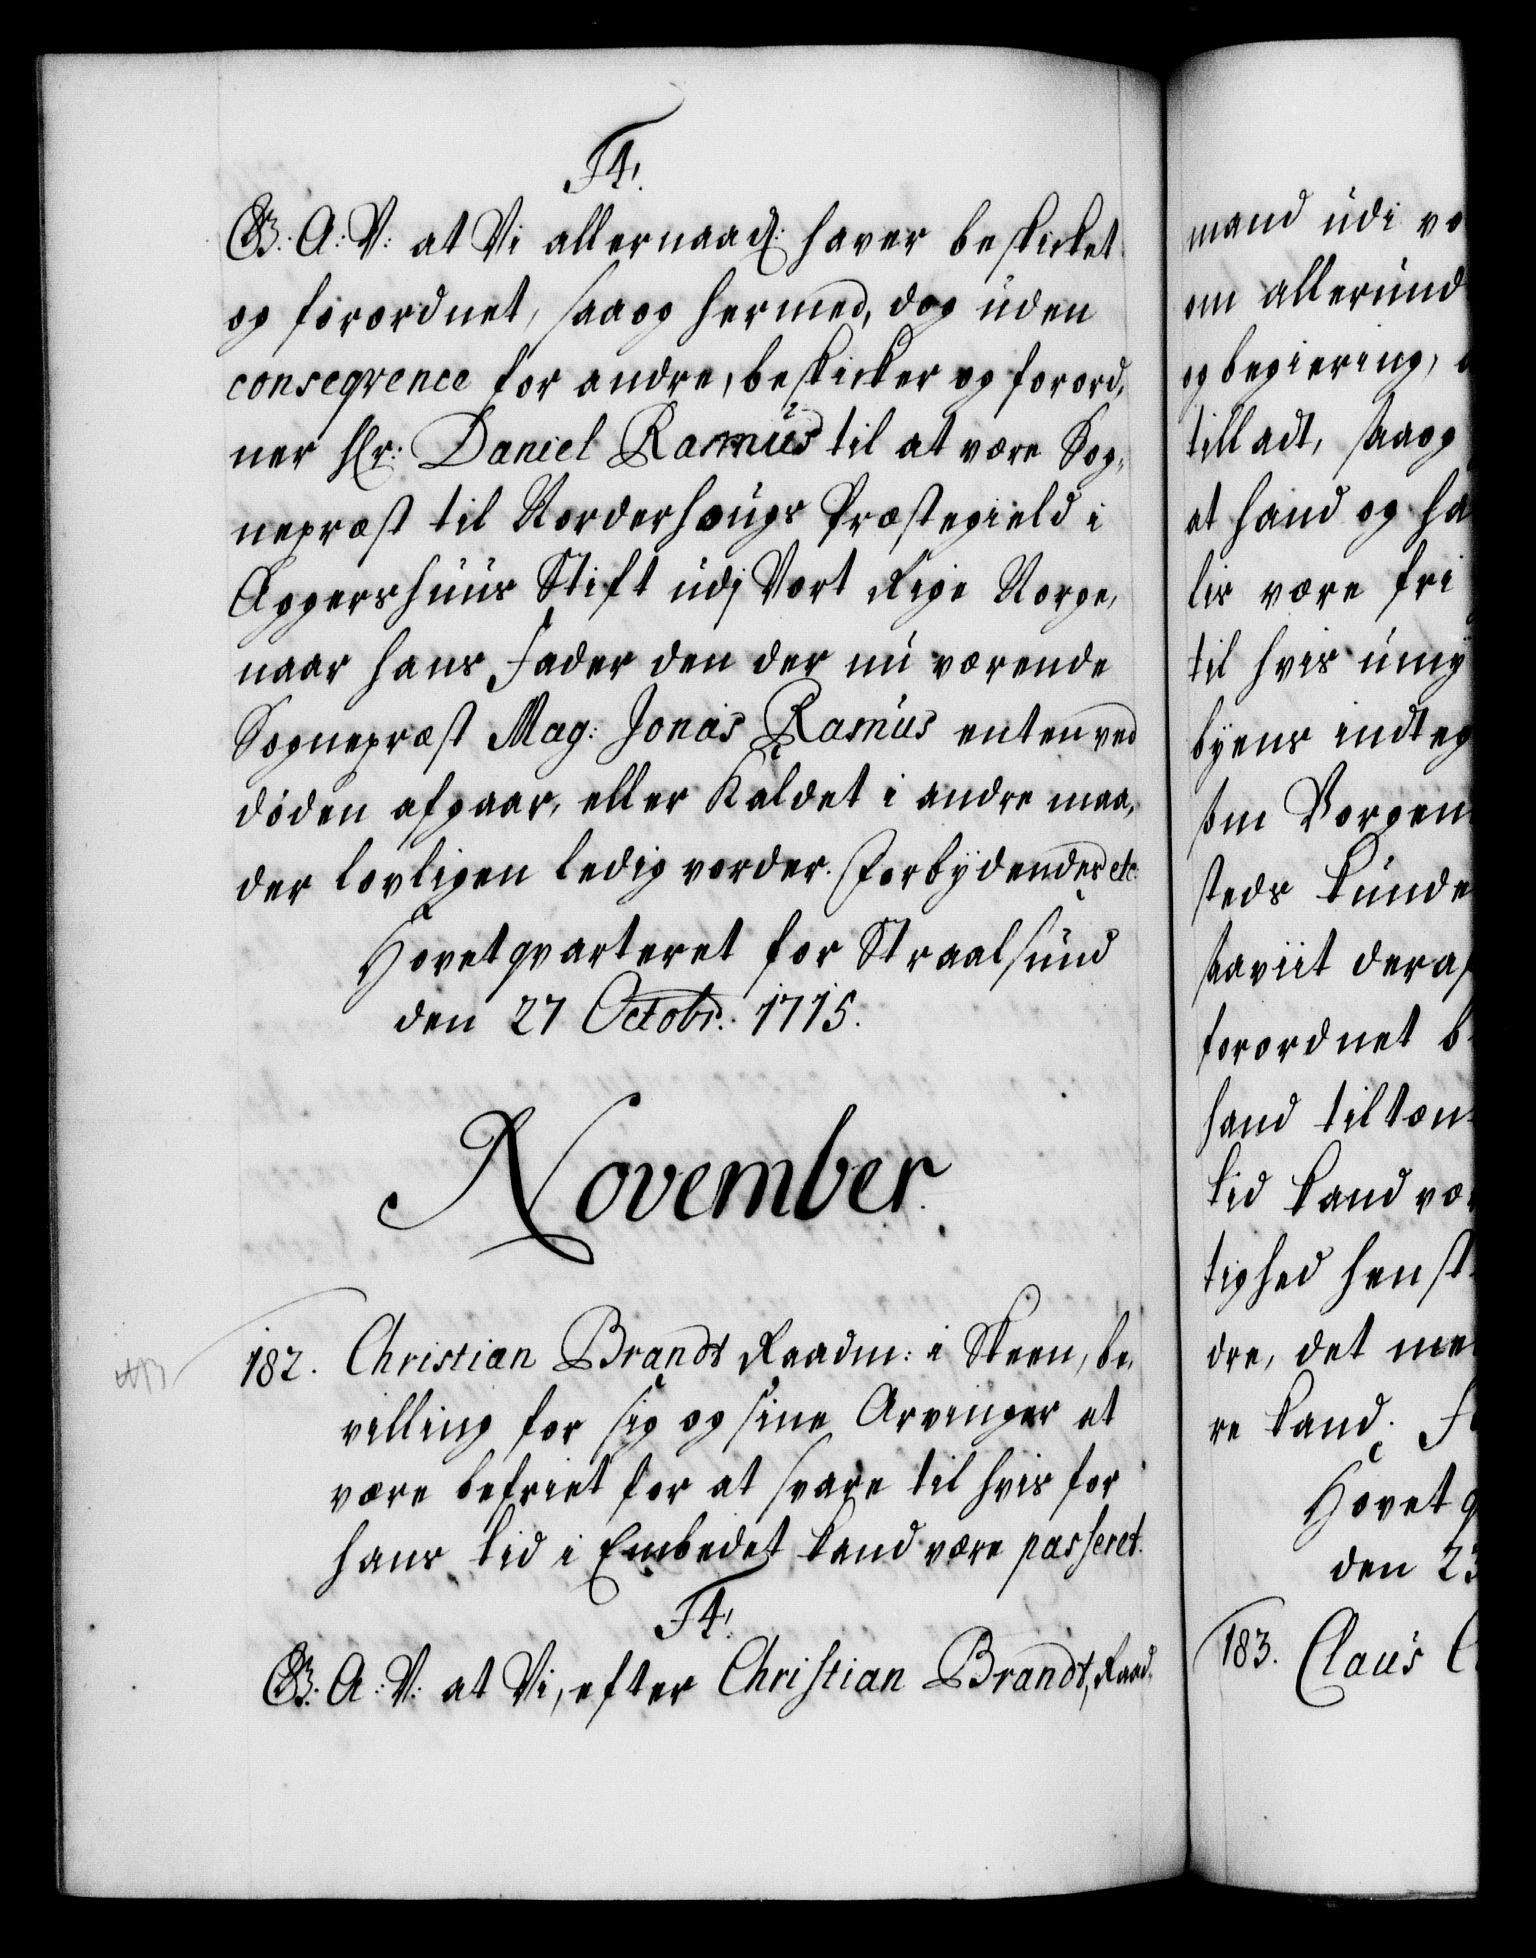 F4.
G. A: V: at Vi allernaad: haver beskicket
og forordnet, saa og hermed, dog uden
conseqvence for andre, beskicker og forord,
ner Hr: Daniel Ramus til at være Sog,
nepræst til Norderhougs Præstegield i
Aggershuus Stift udj Vort Rige Norge,
naar hans Fader den der nu værende
Sognepræst Mag: Jonas Ramus enten ved
døden afgaar, eller Kaldet i andre maa,
der lovligen ledig vorder. Forbydendes etc.
Hovetqvarteret for Straalsund
den 27 Octobr: 1715.
November.
182. Christian Brandt Raadm: i Skeen, be,
villing for sig og sine Arvinger at
være befriet for at svare til hvis for
hans tid i Embedet kand være passeret.
F4.
G. A: V: at Vi, efter Christian Brandt, Raad,
mand udi vo
om allerund
og begiering,
tilladt, saa og
at hand og ha
lis være fri
til hvis umy
byens indteg
som Borgem
steds kunde
saaviit deraf
forordnet b
hand tiltæn
tid kand væ
tighed henst
dre, det me
re kand. F
Hovet q
den 23
183. Claus C